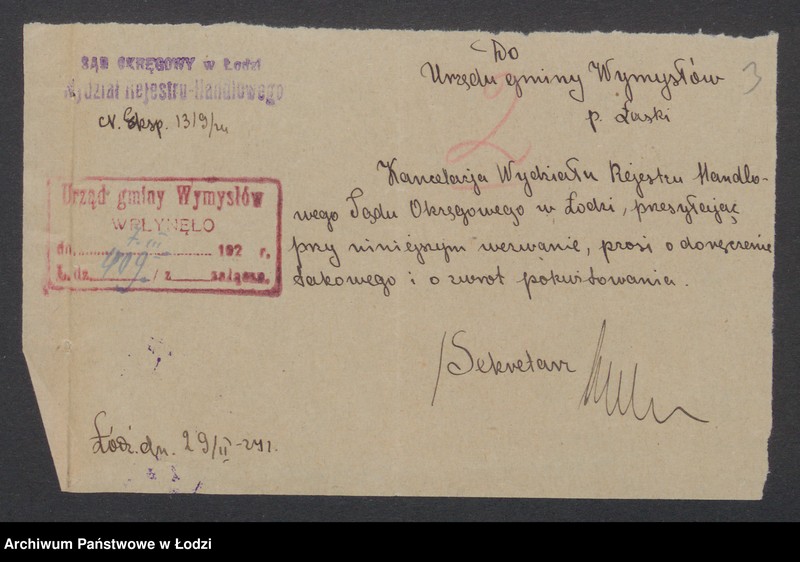 SĄD OKRĘGOWY w Łodzi
Wydział Rejestru-Handlowego
N. Eksp. 1319/24
Do
Urzędu gminy Wymysłów
p. Łaski
3
2
Urząd gminy Wymysłów
WPŁYNĘŁO
dn. III 192 r.
L. dz. 409 / z załącz.
Kancelarja Wydziału Rejestru Handlo-
wego Sądu Okręgowego w Łodzi, przesyłając
przy niniejszym wezwanie, prosi o doręczenie
takowego i o zwrot pokwitowania.
Sekretarz
Łódź. dn. 29/II-24r.
Archiwum Państwowe w Łodzi